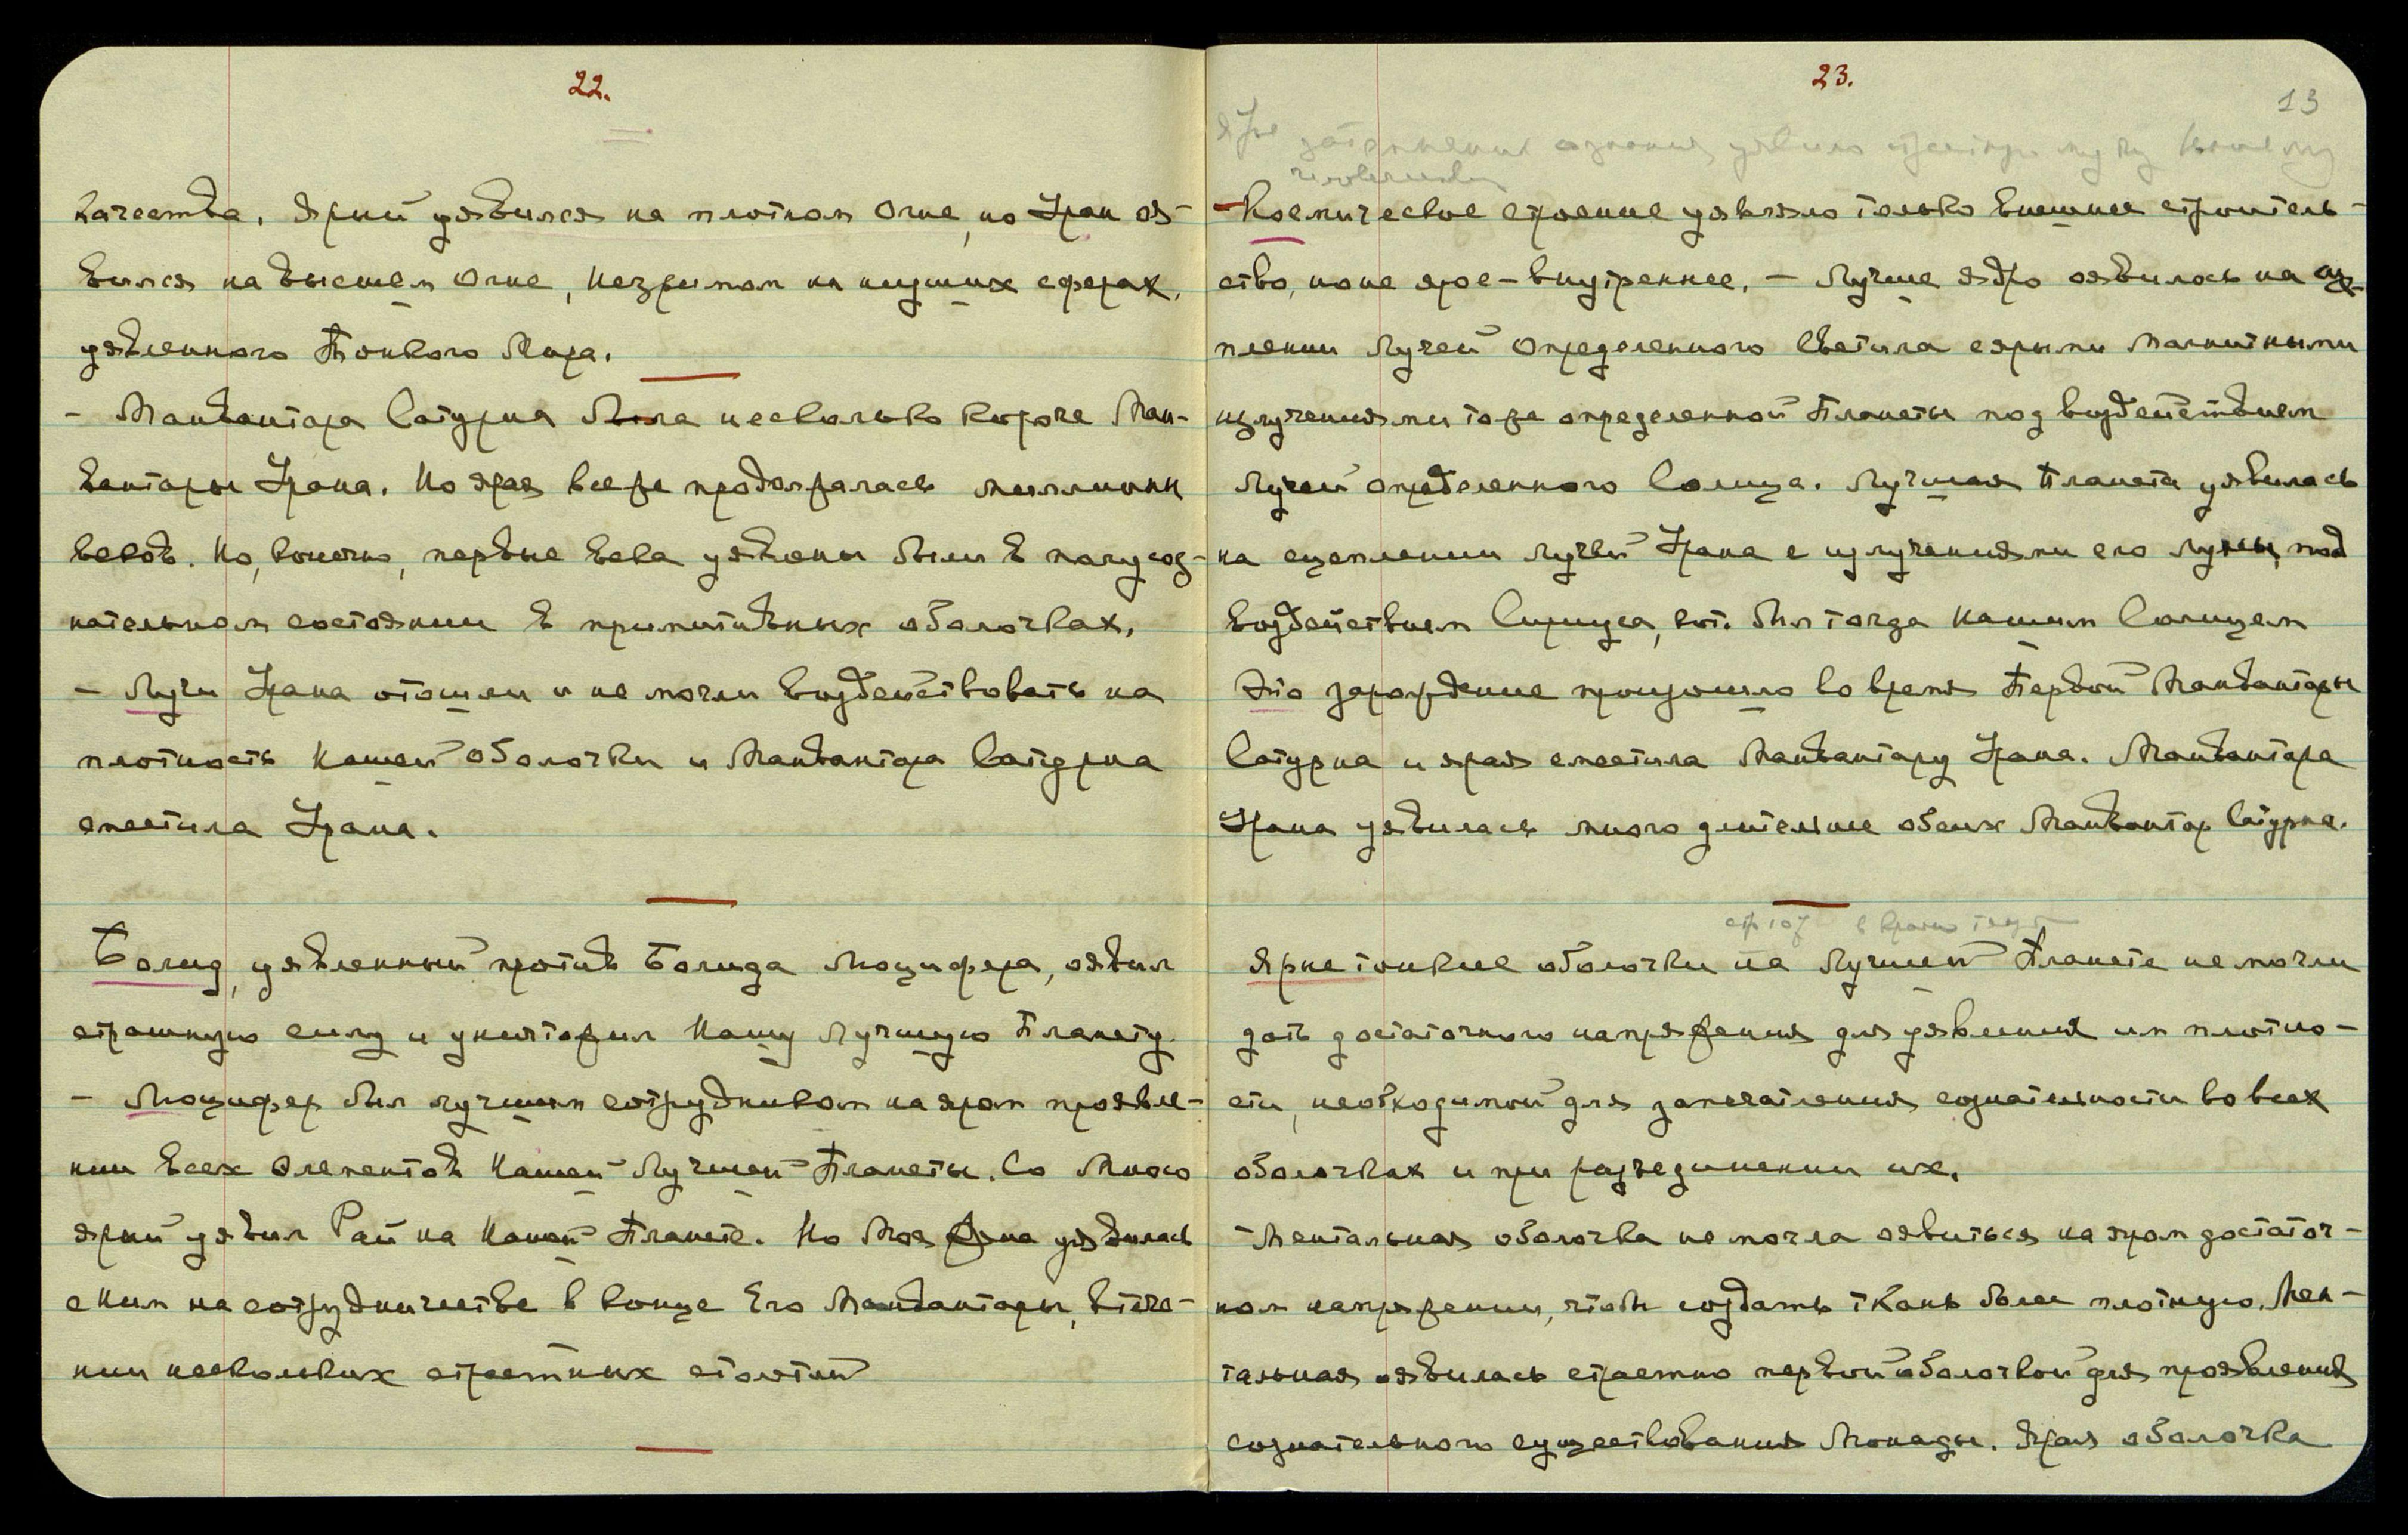 22.
качества. Ярый уявился на плотном Огне, но Уран оя-
вился на высшем Огне, незримом на низших сферах,
уявленного Тонкого Мира.
- Манвантара Сатурна была несколько короче Ман-
вантары Урана. Но ярая все же продолжалась миллионы
веков. Но, конечно, первые века уявлены были в полусоз-
нательном состоянии в примитивных оболочках.
- Лучи Урана отошли и не могли воздействовать на
плотность нашей оболочки и Манвантара Сатурна
сместила Урана.
Болид, уявленный против Болида Люцифера, оявил
страшную силу и уничтожил Нашу Лучшую Планету.
- Люцифер был лучшим сотрудником на яром проявле-
нии всех Элементов Нашей Лучшей Планеты. Со Мною
ярый уявил Рай на Нашей Планете. Но Моя Фуа уявилась
с Ним на сотрудничестве в конце Его Манвантары, в тече-
нии нескольких страстных столетий
23.
13
Ярые сознания уявило
человечества
- Космическое строение уявляло только внешнее строитель-
ство, но не ярое - внутреннее. - Лучшее ядро оявилось на сце-
плении Лучей определенного Светила с ярыми магнитными
излучениями тоже определенной Планеты под воздействием
Лучей определенного Солнца. Лучшая Планета уявилась
на сцеплении лучей Урана с излучениями его луны, под
воздействием Сириуса, кот. был тогда Нашим Солнцем
Это зарождение произошло во время Первой Манвантары
Сатурна и ярая сместила Манвантару Урана. Манвантара
Урана уявилась много длительнее обеих Манвантар Сатурна.
стр 107 в
Ярые тонкие оболочки на Лучшей Планете не могли
дать достаточного напряжения для уявления им плотно-
сти, необходимой для запечатления сознательности во всех
оболочках и при разъединении их.
- Ментальная оболочка не могла оявиться на яром достаточ-
ном напряжении, чтобы создать ткань более плотную. Мен-
тальная оявилась страстно первой оболочкой для проявления
сознательного существования Монады. Ярая оболочка